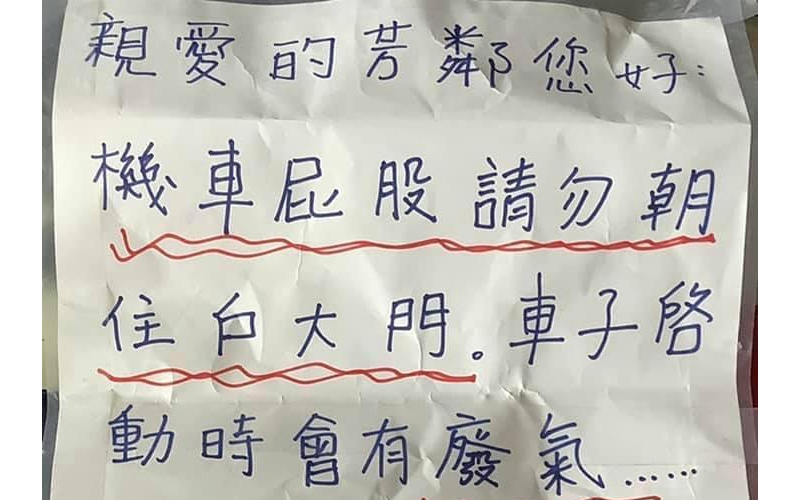 親愛的芳鄰您好：
機車屁股請勿朝
住白大門。車子啓
動時會有廢氣......